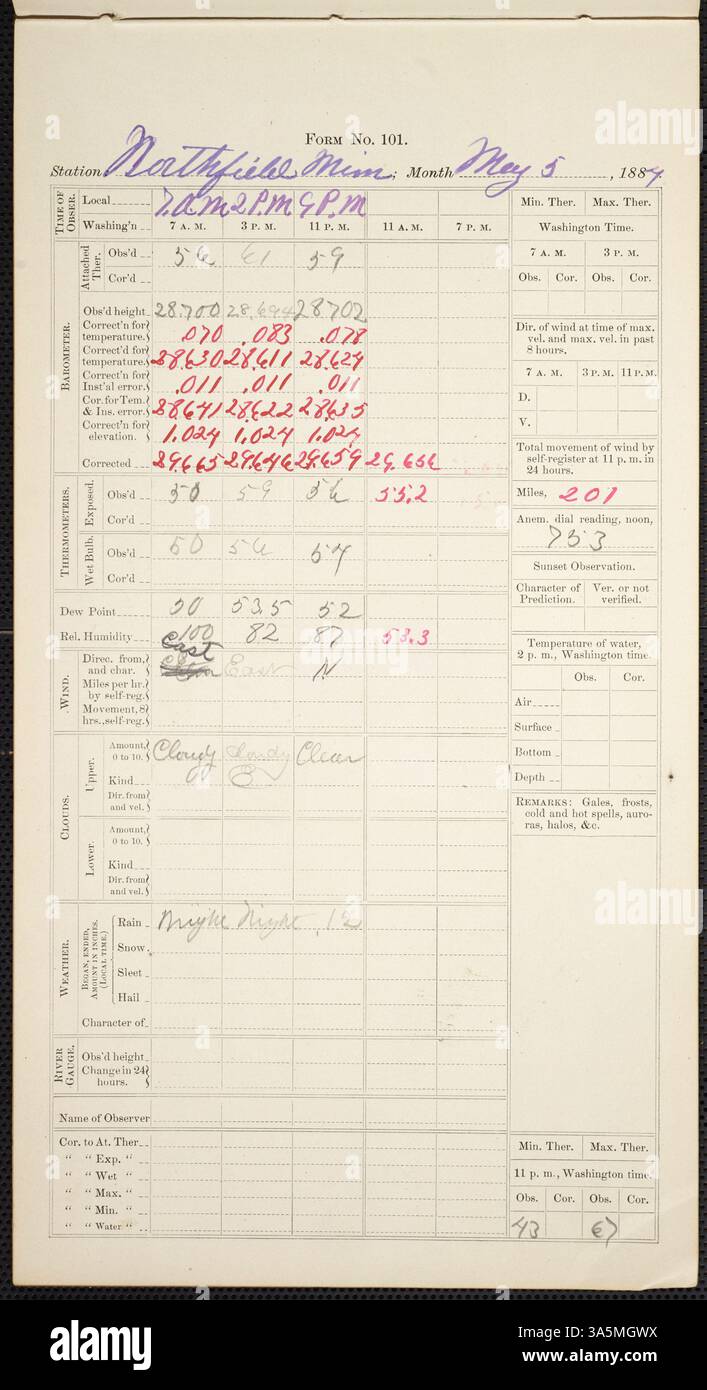 FORM NO. 101.
Station Northfield Minn; Month May 5, 1884
TIME OF OBSER. Local 7 A M 2 P.M 9 P.M
Washing'n 7 A. M. 3 P. M. 11 P. M. 11 A. M. 7 P. M.
Attached Ther. Obs'd 56 61 59
Cor'd
BAROMETER.
Obs'd height 28.700 28.694 28702
Correct'n for temperature. .070 .083 .078
Correct'd for temperature. 28.630 28.611 28.624
Correct'n for Inst'al error. .011 .011 .011
Cor. for Tem. & Ins. error. 28.641 28.622 28.635
Correct'n for elevation. 1.024 1.024 1.024
Corrected 29.665 29.646 29.659 29.656
THERMOMETERS.
Exposed. Obs'd 50 59 56 55.2
Cor'd
Wet Bulb. Obs'd 50 56 54
Cor'd
Dew Point 50 53.5 52
Rel. Humidity 100 82 87 53.3
WIND.
Direc. from, and char. East East N
Miles per hr. by self-reg.
Movement, 8 hrs., self-reg.
CLOUDS.
Upper. Amount, 0 to 10. Cloudy Cloudy Clear
Kind
Dir. from and vel.
Lower. Amount, 0 to 10.
Kind
Dir. from and vel.
WEATHER.
BEGAN, ENDED, AMOUNT IN INCHES. (LOCAL TIME.)
Rain Night Night .12
Snow.
Sleet
Hail
Character of
RIVER GAUGE. Obs'd height
Change in 24 hours.
Name of Observer
Cor. to At. Ther.
" " Exp. "
" " Wet "
" " Max. "
" " Min. "
" " Water "
Min. Ther. Max. Ther.
Washington Time.
7 A. M. 3 P. M.
Obs. Cor. Obs. Cor.
Dir. of wind at time of max. vel. and max. vel. in past 8 hours.
7 A. M. 3 P. M. 11 P. M.
D.
V.
Total movement of wind by self-register at 11 p. m. in 24 hours.
Miles, 201
Anem. dial reading, noon,
753
Sunset Observation.
Character of Prediction. Ver. or not verified.
Temperature of water, 2 p. m., Washington time.
Obs. Cor.
Air
Surface
Bottom
Depth
REMARKS: Gales, frosts, cold and hot spells, auroras, halos, &c.
Min. Ther. Max. Ther.
11 p. m., Washington time.
Obs. Cor. Obs. Cor.
43 67
alamy
alamy
alamy
a
a
a
alamy
Image ID: 3A5MGWX
www.alamy.com